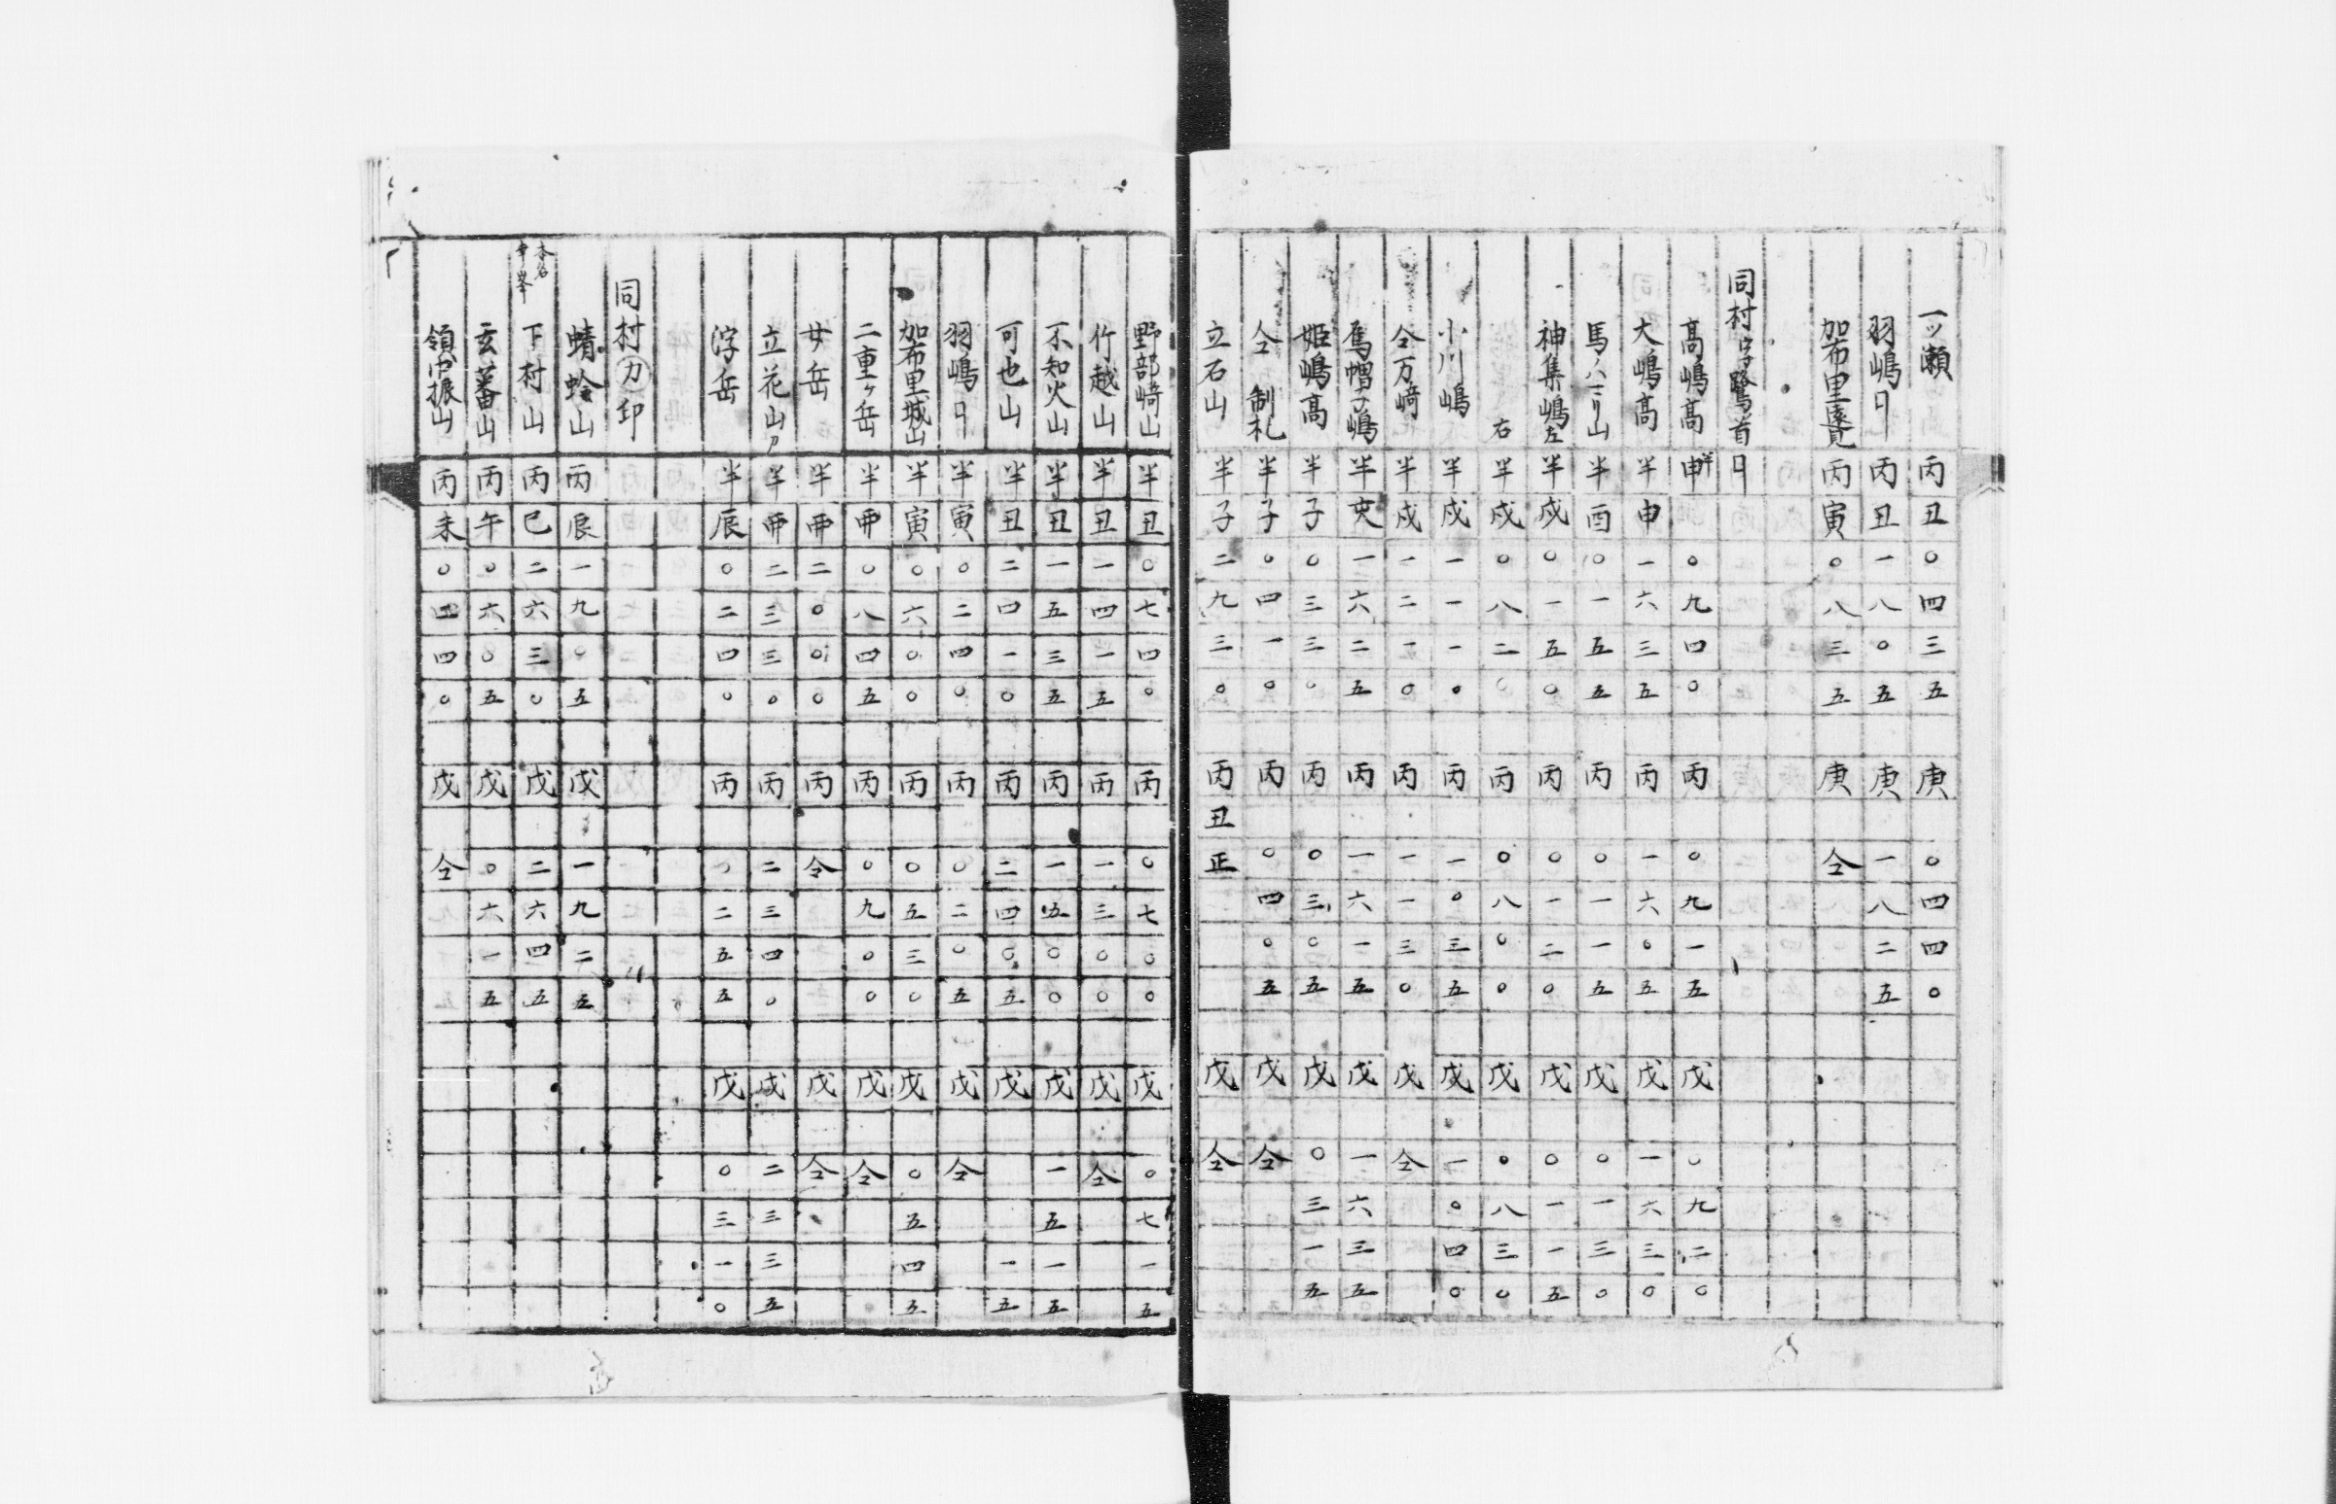 一ッ瀬 丙 丑 〇 四 三 五 庚 〇 四 四 〇
羽嶋 丙 丑 一 八 〇 五 庚 一 八 二 五
加布里 丙 寅 〇 八 三 五 庚 仝
同村字鷺首
高嶋高 半 申 〇 九 四 〇 丙 〇 九 一 五 戊 〇 九 二 〇
大嶋高 半 申 一 六 三 五 丙 一 六 〇 五 戊 一 六 三 〇
馬ノハミリ山 半 酉 〇 一 五 五 丙 〇 一 一 五 戊 〇 一 三 〇
神集嶋左 半 戌 〇 一 五 〇 丙 〇 一 二 〇 戊 〇 一 一 五
右 半 戌 〇 八 二 〇 丙 〇 八 〇 〇 戊 〇 八 三 〇
小川嶋 半 戌 一 一 一 〇 丙 一 〇 三 五 戊 一 〇 四 〇
仝万﨑 半 戌 一 二 一 〇 丙 一 一 三 〇 戊 仝
烏帽子嶋 半 亥 一 六 二 五 丙 一 六 一 五 戊 一 六 三 五
姫嶋高 半 子 〇 三 三 〇 丙 〇 三 〇 五 戊 〇 三 一 五
仝 制札 半 子 〇 四 一 〇 丙 〇 四 〇 五 戊 仝
立石山 半 子 二 九 三 〇 丙 丑 正 戊 仝
野部﨑山 半 丑 〇 七 四 〇 丙 〇 七 〇 〇 戊 〇 七 一 五
竹越山 半 丑 一 四 一 五 丙 一 三 〇 〇 戊 仝
不知火山 半 丑 一 五 三 五 丙 一 五 〇 〇 戊 一 五 一 五
可也山 半 丑 二 四 一 〇 丙 二 四 〇 五 戊 一 五
羽嶋 半 寅 〇 二 四 〇 丙 〇 二 〇 五 戊 仝
加布里城山 半 寅 〇 六 〇 〇 丙 〇 五 三 〇 戊 〇 五 四 五
二重ヶ岳 半 丣 〇 八 四 五 丙 〇 九 〇 〇 戊 仝
女岳 半 丣 二 〇 〇 〇 丙 仝 戊 仝
立花山 半 丣 二 三 三 〇 丙 二 三 四 〇 戊 二 三 三 五
浮岳 半 辰 〇 二 四 〇 丙 〇 二 五 五 戊 〇 三 一 〇
同村㋕印
蜻蛉山 丙 辰 一 九 〇 五 戊 一 九 二 五
本名
下村山 丙 巳 二 六 三 〇 戊 二 六 四 五
玄蕃山 丙 午 〇 六 〇 五 戊 〇 六 一 五
領巾振山 丙 未 〇 四 四 〇 戊 仝